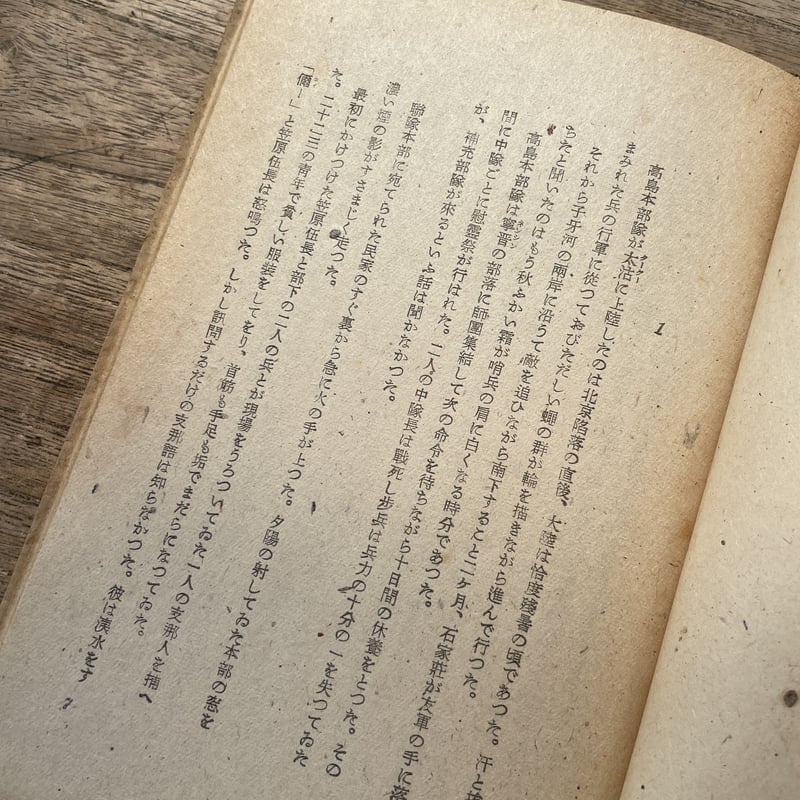 1
高島本部隊が太沽に上陸したのは北京陷落の直後、大陸は恰度殘暑の頃であつた。汗と
まみれた兵の行軍に從つておびただしい蠅の群が輪を描きながら進んで行つた。
それから子牙河の兩岸に沿うて敵を追ひながら南下すること二ケ月、石家莊が友軍の手に落
ちたと聞いたのはもう秋ふかい霜が哨兵の肩に白くなる時分であつた。
高島本部隊は寧晋の部落に師團集結して次の命令を待ちながら十日間の休養をとつた。その
間に中隊ごとに慰靈祭が行はれた。二人の中隊長は戰死し步兵は兵力の十分の一を失つてゐた
が、補充部隊が來るといふ話は聞かなかつた。
聯隊本部に宛てられた民家のすぐ裏から急に火の手が上つた。夕陽の射してゐた本部の窓を
濃い煙の影がすさまじく走つた。
最初にかけつけた笠原伍長と部下の二人の兵とが現場をうろついてゐた一人の支那人を捕へ
た。二十二三の青年で貧しい服裝をしてをり、首筋も手足も垢でまだらになつてゐた。
「儞！」と笠原伍長は怒鳴つた。しかし訊問するだけの支那語は知らなかつた。彼は洟水をす
7